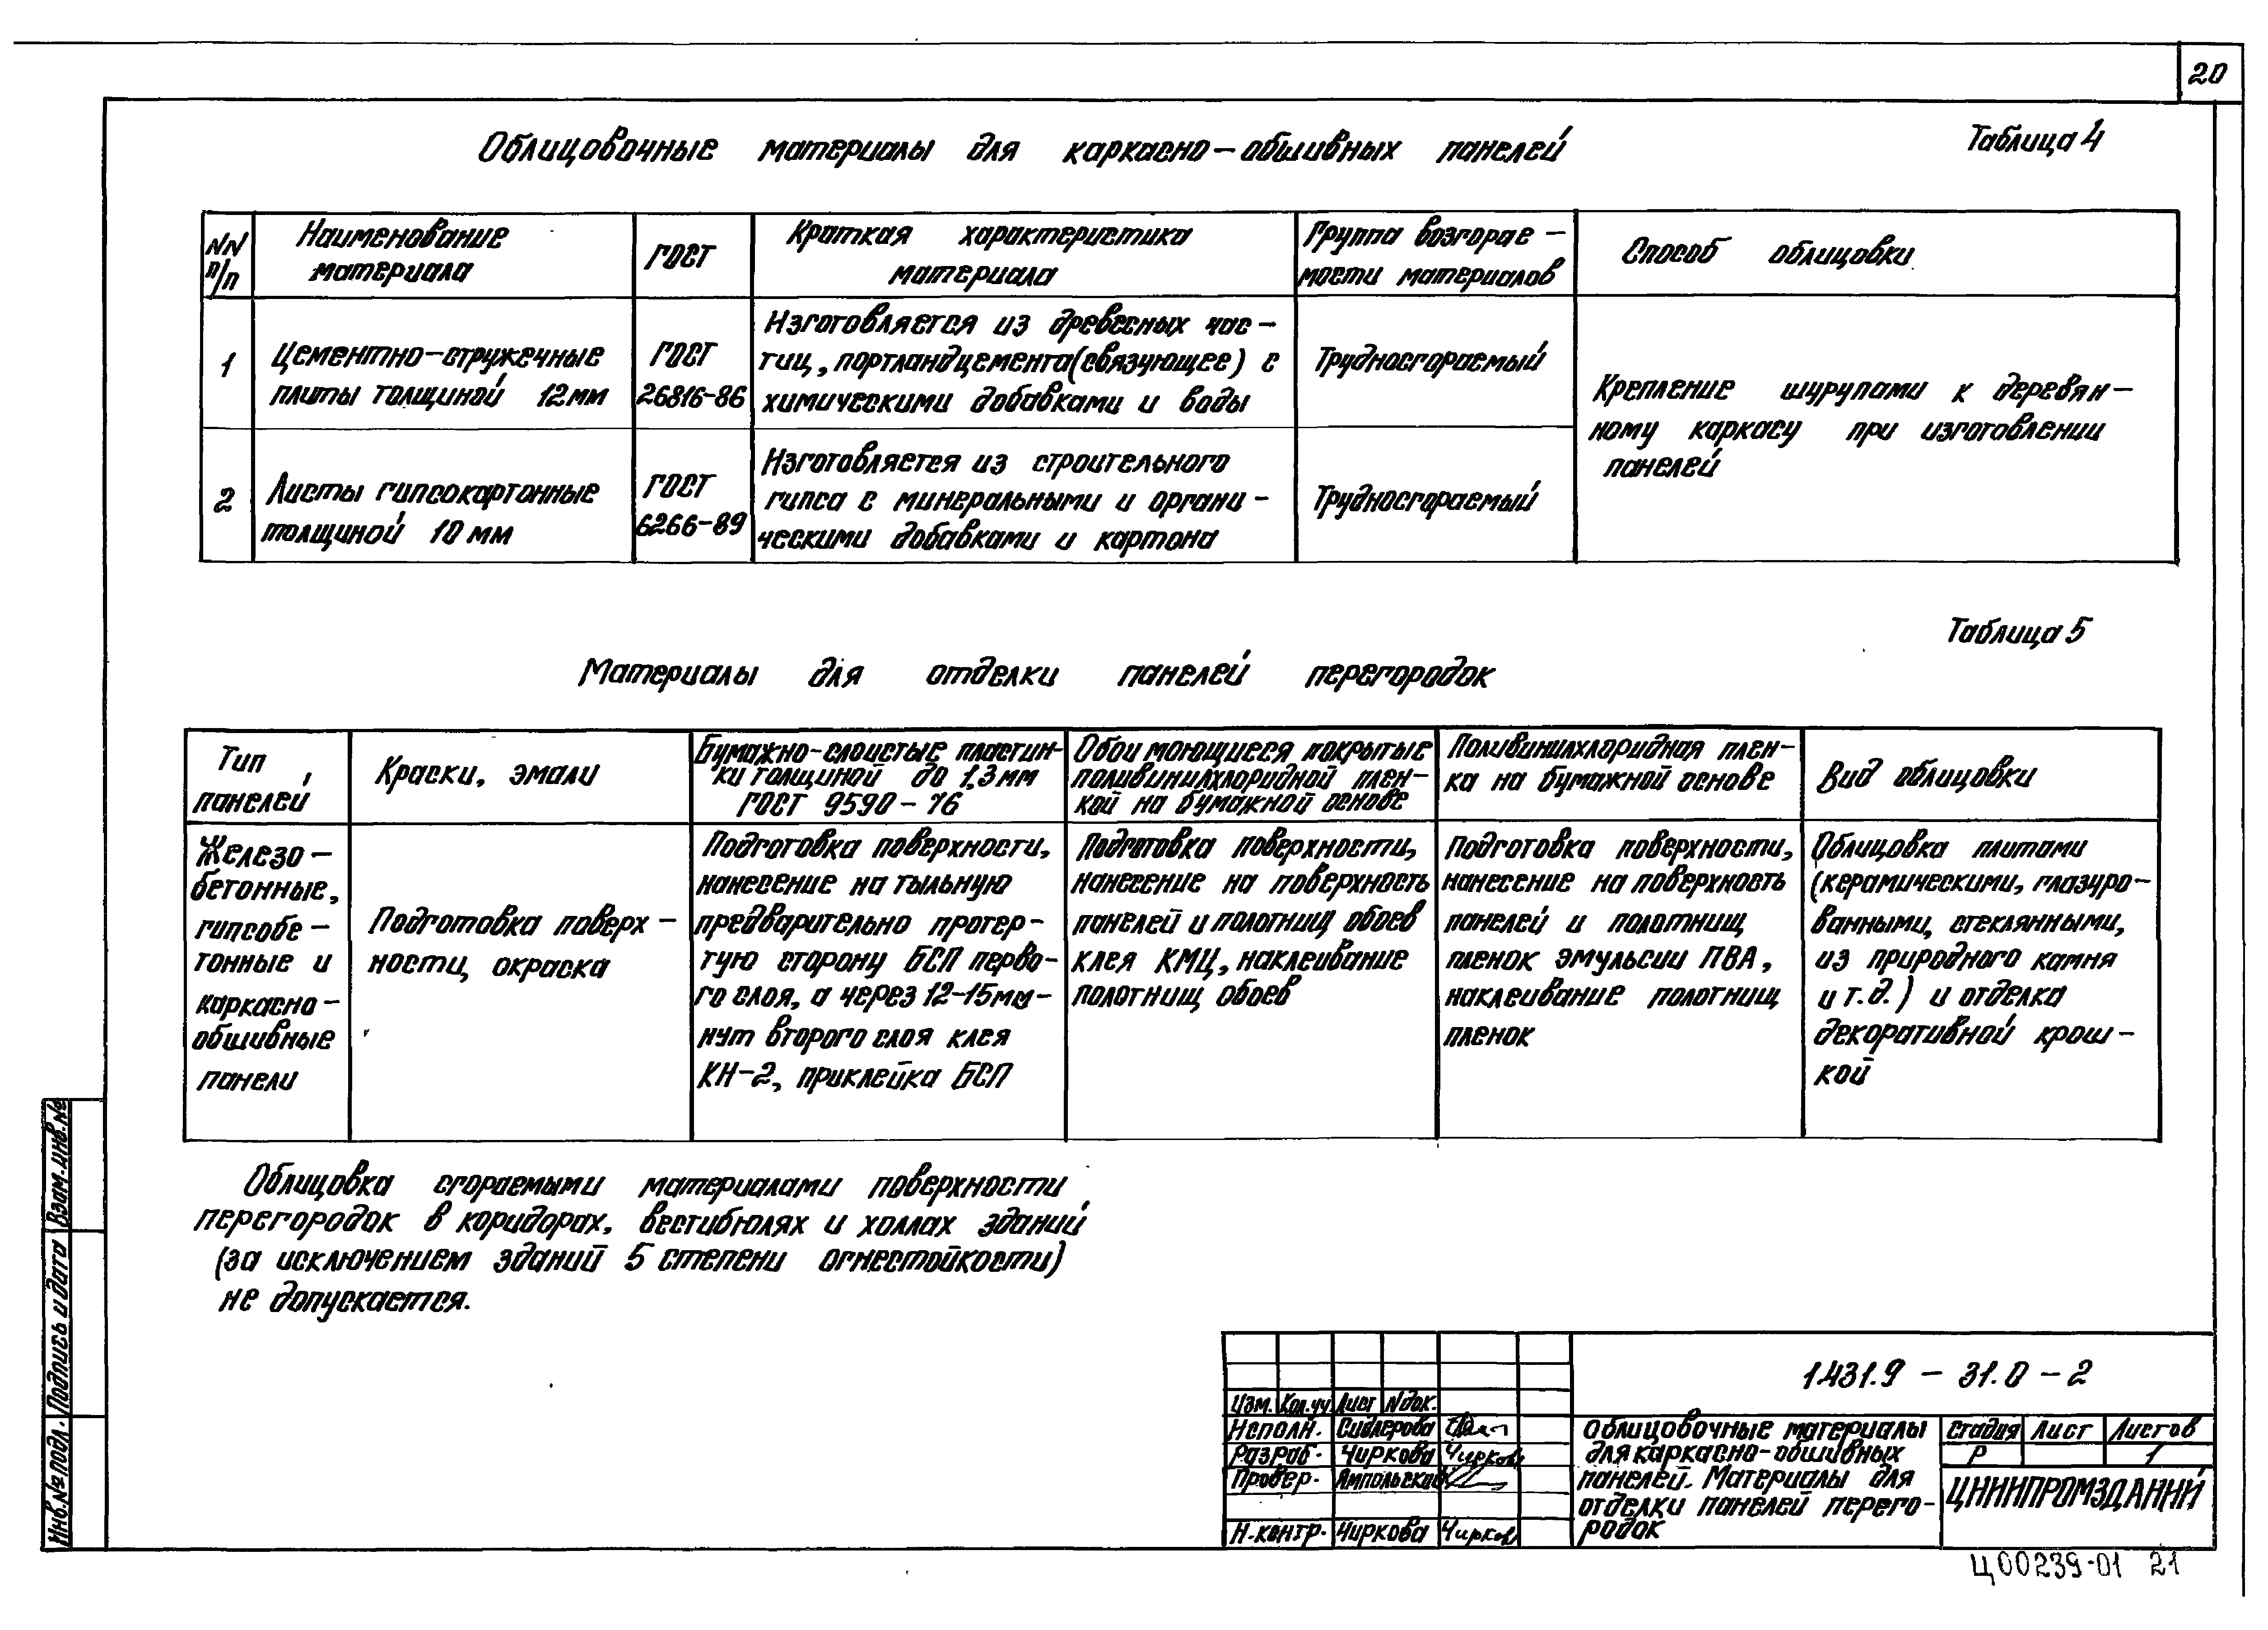 20
Таблица 4
Облицовочные материалы для каркасно-обшивных панелей
NN
п/п
Наименование
материала
ГОСТ
Краткая характеристика
материала
Группа возгорае-
мости материалов
Способ облицовки
1
Цементно-стружечные
плиты толщиной 12 мм
ГОСТ
26816-86
Изготовляется из древесных час-
тиц, портландцемента (связующее) с
химическими добавками и воды
Трудносгораемый
Крепление шурупами к деревян-
ному каркасу при изготовлении
панелей
2
Листы гипсокартонные
толщиной 10 мм
ГОСТ
6266-89
Изготовляется из строительного
гипса с минеральными и органи-
ческими добавками и картона
Трудносгораемый
Таблица 5
Материалы для отделки панелей перегородок
Тип
панелей
Краски, эмали
Бумажно-слоистые пластин-
ки толщиной до 1,3 мм
ГОСТ 9590-76
Обои моющиеся покрытые
поливинилхлоридной плен-
кой на бумажной основе
Поливинилхлоридная плен-
ка на бумажной основе
Вид облицовки
Железо-
бетонные,
гипсобе-
тонные и
каркасно-
обшивные
панели
Подготовка поверх-
ности, окраска
Подготовка поверхности,
нанесение на тыльную
предварительно протер-
тую сторону БСП перво-
го слоя, а через 12-15 ми-
нут второго слоя клея
КН-2, приклейка БСП
Подготовка поверхности,
нанесение на поверхность
панелей и полотнищ обоев
клея КМЦ, наклеивание
полотнищ обоев
Подготовка поверхности,
нанесение на поверхность
панелей и полотнищ
пленок эмульсии ПВА,
наклеивание полотнищ
пленок
Облицовка плитами
(керамическими, глазуро-
ванными, стеклянными,
из природного камня
и т.д.) и отделка
декоративной крош-
кой
Облицовка сгораемыми материалами поверхности
перегородок в коридорах, вестибюлях и холлах зданий
(за исключением зданий 5 степени огнестойкости)
не допускается.
Взам. инв. №
Подпись и дата
Инв. № подл.
1.431.9 - 31.0 - 2
Изм. Кол.уч Лист N док.
Исполн. Сидлерова
Разраб. Чиркова Чирков
Провер. Ямпольская
Н.контр. Чиркова Чирков
Облицовочные материалы
для каркасно-обшивных
панелей. Материалы для
отделки панелей перего-
родок
Стадия Лист Листов
Р 1
ЦНИИПРОМЗДАНИЙ
Ц00239-01 21